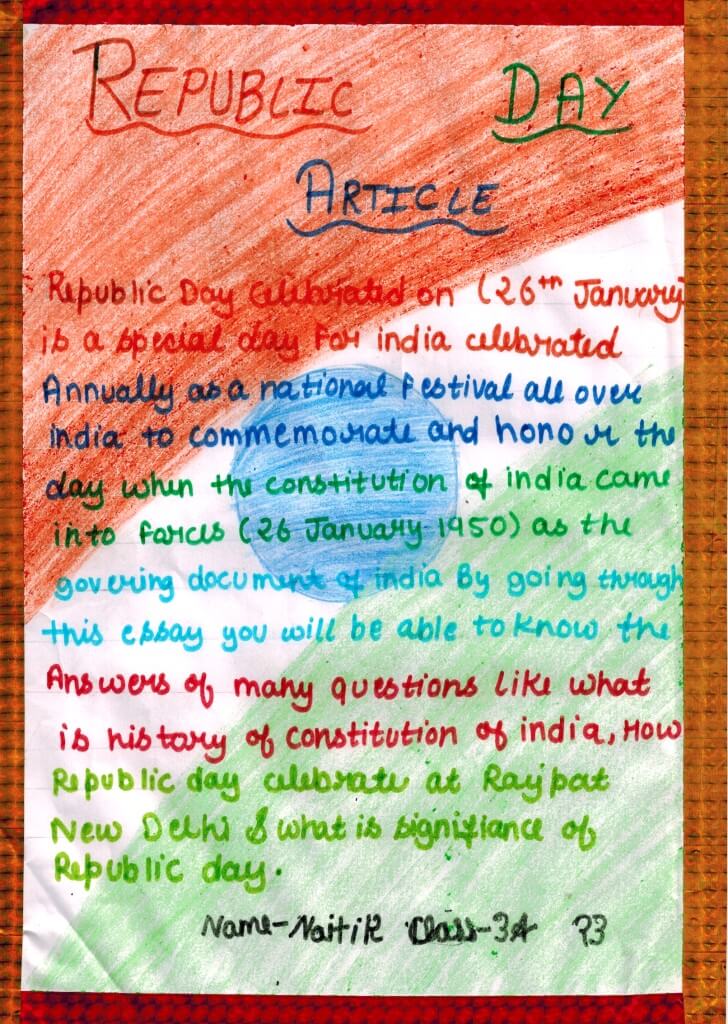 REPUBLIC DAY
ARTICLE
Republic Day Celebrated on (26th January)
is a special day for india celebrated
Annually as a national festival all over
india to commemorate and honour the
day when the constitution of india came
into forces (26 January 1950) as the
govering document of india By going through
this essay you will be able to know the
Answers of many questions like what
is history of constitution of india, How
Republic day celebrate at Rajpat
New Delhi & what is signifiance of
Republic day.
Name-Naitik Class-3A 73